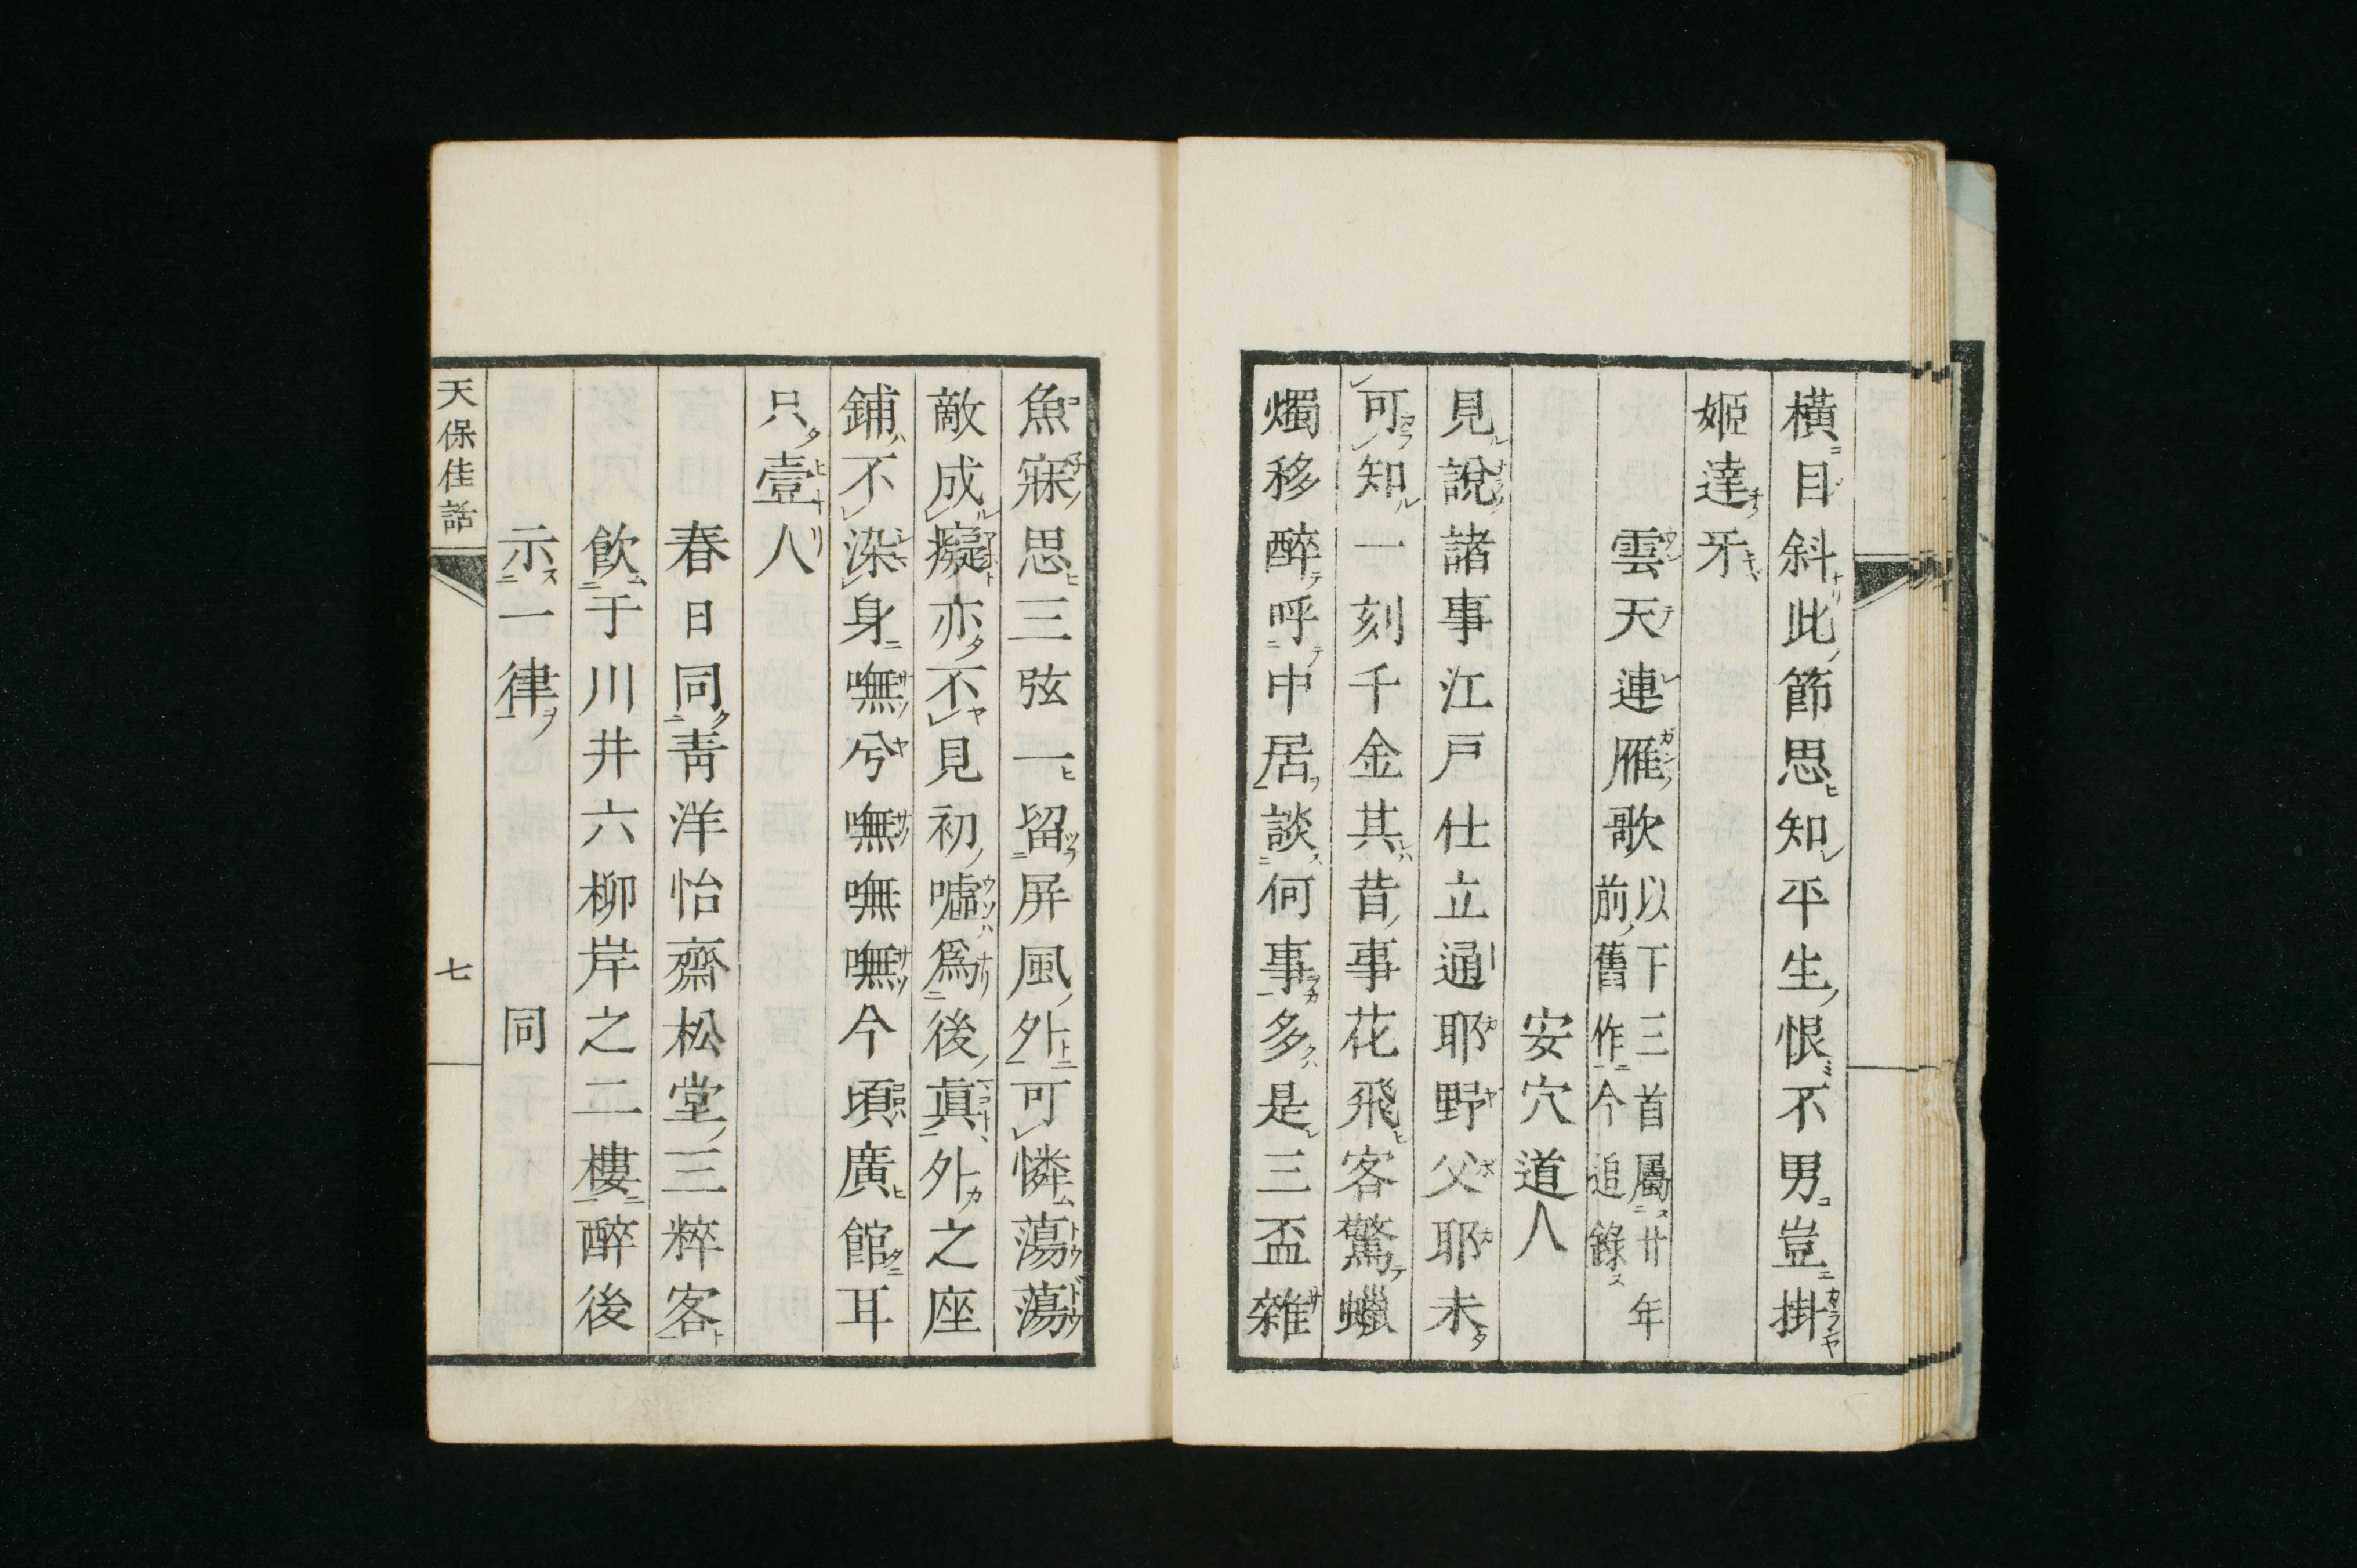 横目斜此節思知平生恨不男豈掛
姫達牙
雲天連雁歌 以下三首屬廿年
前舊作今追錄
安穴道人
見說諸事江戸仕立通耶野父耶未
可知一刻千金其昔事花飛客驚蠟
燭移醉呼中居談何事多是三盃雜
魚寐思三弦一留屏風外可憐蕩蕩
敵成癡亦不見初嘘爲後眞外之座
鋪不染身嘸兮嘸嘸嘸今頃廣館耳
只壹人
春日同靑洋怡齋松堂三粹客
飮于川井六柳岸之二樓醉後
示一律 同
天保佳話 七